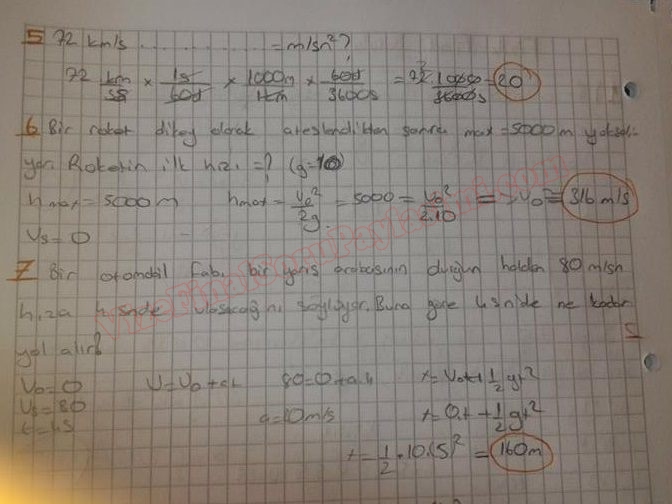 5 72 km/s ............ = m/sn²?
72 km/ss × 1s/60d × 1000m/1km × 60d/3600s = 72.10000/3600s = 20
6 Bir roket dikey olarak ateşlendikten sonra max = 5000m yüksel-
iyor. Roketin ilk hızı = ? (g=10)
hmax = 5000m hmax = V₀²/2g = 5000 = V₀²/2.10 = V₀ = 316 m/s
Vs = 0
7 Bir otomobil fab. bir yarış arabasının durgun halden 80 m/sn
hıza snde ulaşacağını söylüyor. Buna göre 4 snide ne kadar
yol alır?
V₀=0 V=V₀+at 80=0+a.4 x=V₀t+1/2 gt²
Vs=80 a=10m/s x=0.t+1/2 gt²
t=4s
x=1/2.10.(5)² = 160m